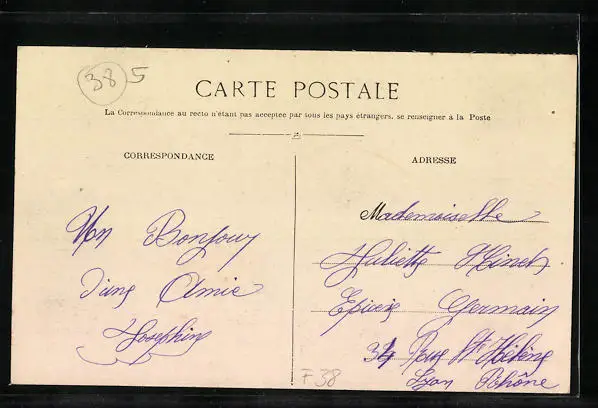 38 5
CARTE POSTALE
La Correspondance au recto n'étant pas acceptée par tous les pays étrangers, se renseigner à la Poste
CORRESPONDANCE
ADRESSE
Un Bonjour
d'une Amie
Joséphine
Mademoiselle
Juliette
Epicerie Germain
34 Rue Ste Hélène
Lyon Rhône
F38